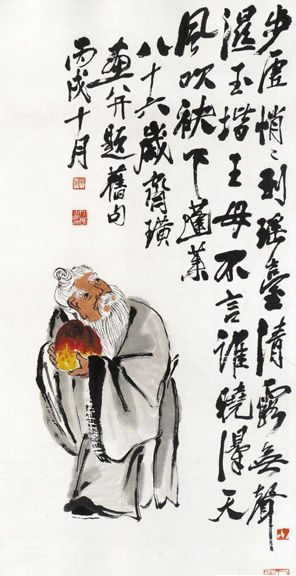 步虛悄〻到瑤臺清露無聲
濕玉堦王母不言誰曉得天
風吹袂下蓬萊
八十六歲齊璜
畫并題舊句
丙戌十月